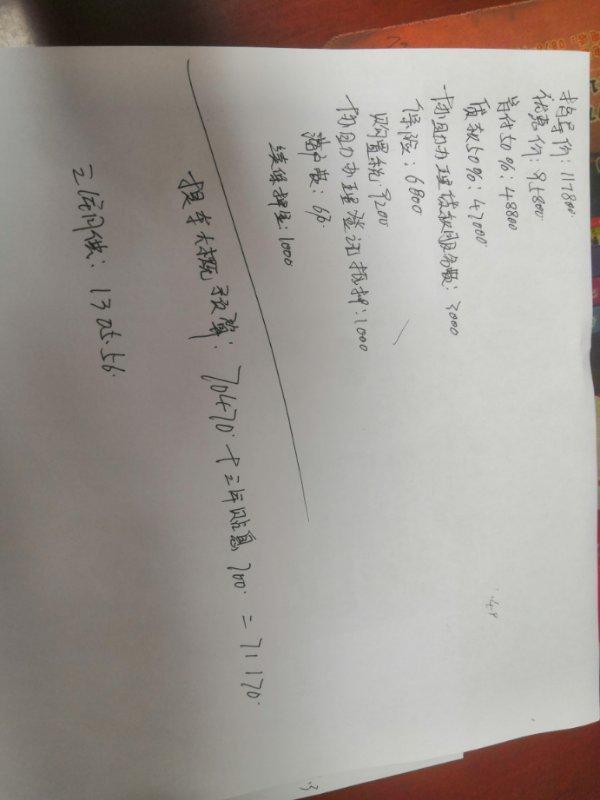 指导价：117800
优惠价：95800
首付50%：48800
贷款50%：47000
协助办理贷款服务费：3000
保险：6800
购置税：9200
协助办理登记抵押：1000
落户费：670
续保押金：1000
提车大概预算：70470.+三年贴息700.=71170.
三年月供：1305.56.